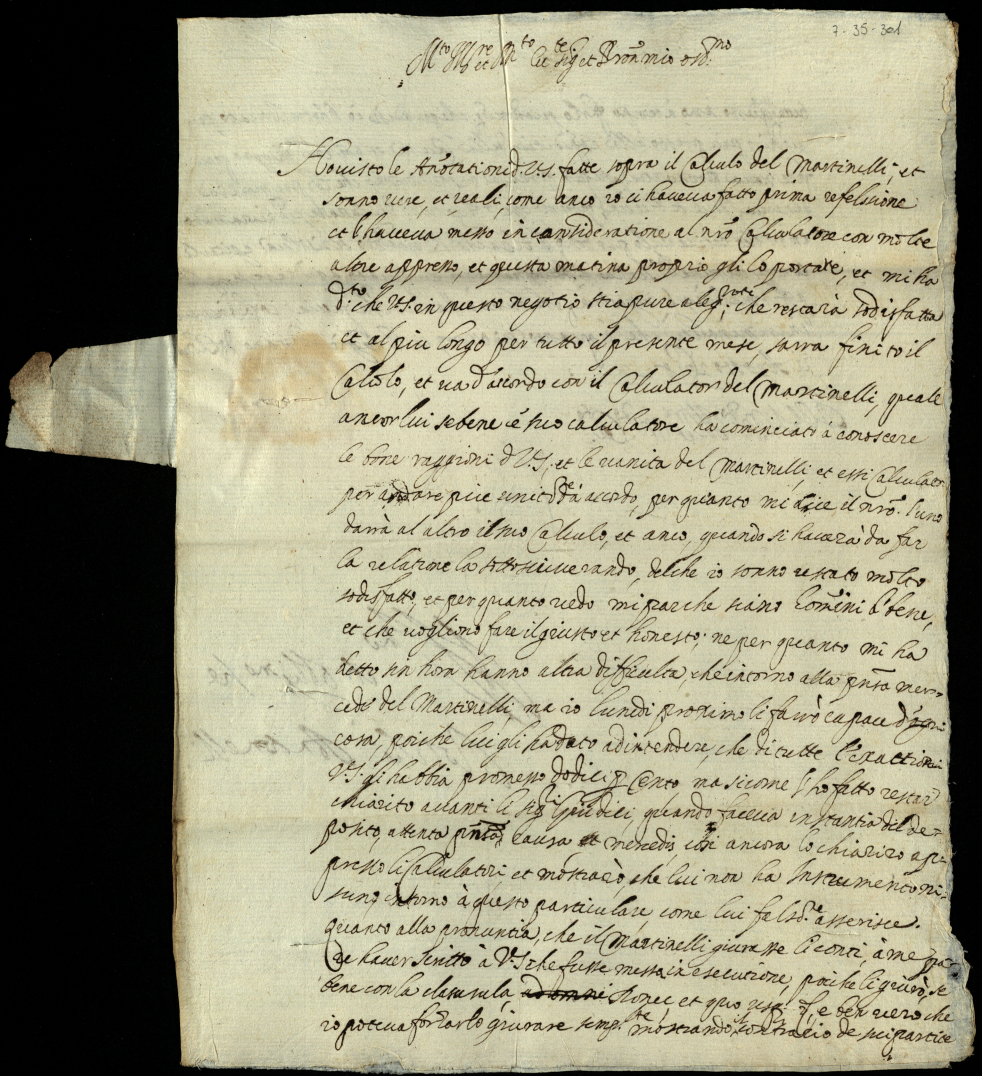 7-35-301
M.to Ill.re et R.to sig.r et Pron mio oss.mo
Ho visto le Annotationi d. V.S. fatte sopra il Calculo del Martinelli, et
sonno vere, et reali, come anco io ci haveva fatto prima reflessione
et l'haveva messo in consideratione al nro Calculatore con molte
altre appresso, et questa matina proprio gli lo portate, et mi ha
d.to che V.S. in questo negotio stia pure aleg.te, che restarà sodisfatta
et al piu longo per tutto il presente mese, sarra finito il
Calculo, et va d'accordo con il Calculator del Martinelli, quale
ancor lui sebene è suo calculatore ha cominciato à conoscere
le bone raggioni d V.S. et le vanita del Martinelli, et essi Calculatori
per andare piu unit.te d'accordo, per quanto mi dice il nro. l'uno
darrà al altro il suo Calculo, et anco, quando si haverà da far
la relatione la sottoscriverando, del che io sonno restato molto
sodisfatto, et per quanto vedo mi par che siano homini da bene,
et che vogliono fare il giusto et honesto; ne per quanto mi ha
detto sin hora hanno altra difficulta, che intorno alla pnsa mer-
cede del Martinelli, ma io lunedi proximo li farrò capace d'ogni
cosa, poiche lui gli ha dato ad intendere, che di tutte l'exattioni
V.S. gli habbia promesso dodici p Cento, ma sicome l'ho fatto restar
chiarito avanti li sig.ri Giudici, quando faceva instantia del de-
posito, attenta pnsa causa mercedis, così ancora lo chiarirò ap-
presso li Calculatori, et mostrarò, che lui non ha Instrumento ni-
suno intorno à questo particulare, come lui fals.te asserisce.
Quanto alla pronuntia, che il Martinelli giurasse li conti, à me par
re haver scritto à V.S. che fusse messa in esecutione, poiche li giurò, se
bene con la clausula, donec et quo usq., e ben vero che
io poteva forzarlo giurare semp.te mostrando il contrario de sei partite